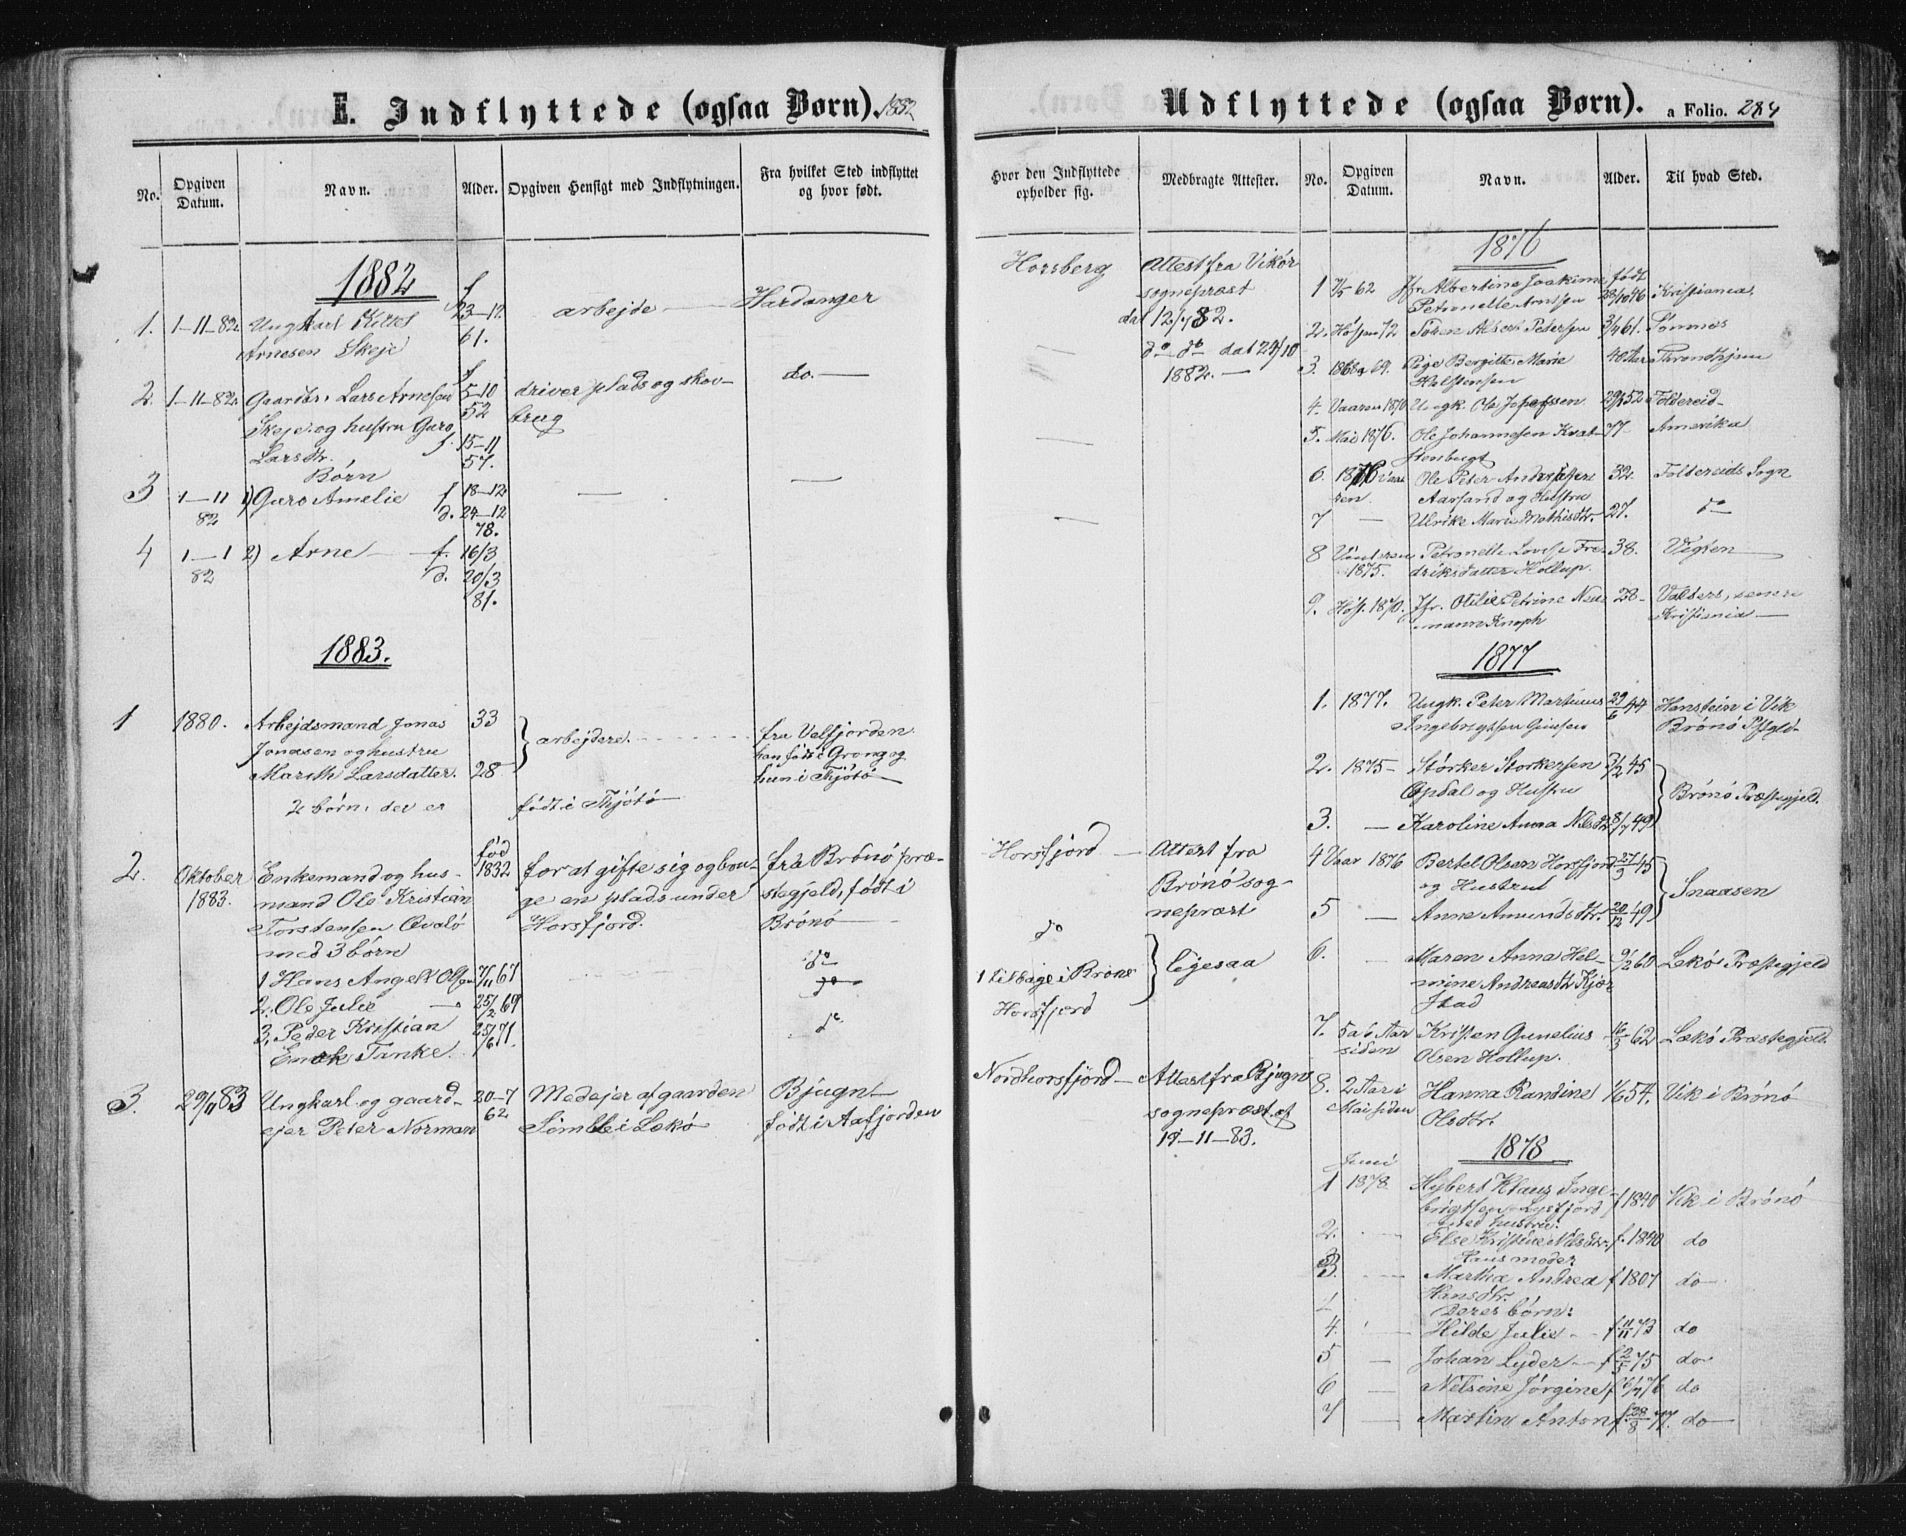 E. Indflyttede (ogsaa Børn). 1882
No.
Opgiven Datum.
Navn.
Alder.
Opgiven Hensigt med Indflytningen.
Fra hvilket Sted indflyttet og hvor født.
1882
1. 1-11-82. Ungkarl
Arnesen Skeje
f 23-12 61.
arbejde
Hardanger
2. 1-11-82. Gaardbr. Lars Arnesen
Skeje og hustru Guro
Larsdtr.
f 5-10 52
f. 15-11 57.
driver plads og skov-
brug
do.
Børn
3 1-11 82 1) Guro Amelie f 18-12
d. 24-12 78.
4 1-1 82 2) Arne f. 16/3
d. 20/3 81.
1883.
1 1880. Arbejdsmand Jonas 33
Jonasen og hustru
Marith Larsdatter. 28
2 børn: der er født i Thjötö
arbejdere.
fra Velfjorden
han født i Grong og
hun i Thjötö
2. Oktober 1883. Enkemand og hus-
mand Ole Kristian
Torstensen Qvalö
med 3 børn
fød 1832
for at gifte sig og
ge en plads under
Horsfjord.
fra Brönö præ-
stegjeld, født i
Brönö
1 Hans Angell Olsen 7/11 67 do
2. Ole Julie 25/2 69 do
3, Peder Kristian 25/6 71. do
Tanke.
3. 29/11 83 Ungkarl og gaard-
ejer Peter Norman
20-7 62
Medejer af gaarden
i Lekö
Bjugn
født i Aafjorden
Udflyttede (ogsaa Børn). a Folio. 284
Hvor den Indflyttede opholder sig.
Medbragte Attester.
No.
Opgiven Datum.
Navn.
Alder.
Til hvad Sted.
Horsberg
Attest fra Vikör
sognepræst
dat 12/7 82.
do do dat 29/10
1882.
Horsfjord
Attest fra
Brönö sog-
nepræst
do
1 tilbage i Brönö
Horsfjord
ligesaa
Nordhorsfjord
Attest fra Bjugns
sognepræst af
19-11-83.
1876
1 7/5 62 Jfr. Albertine Joakime
Petronelle Arntsen
født 28/10 46 Kristiania
2. Høsten 72 Sören Petersen 3/4 61. Sömnes
3. 1868 a 69. Pige Bergitte Marie 40 Aar Throndhjem
4. Vaaren 1876 Ungk. Ole Josefssen 52 Foldereid
5. Mai 1876. Ole Johannesen 77 Amerika
6. 1876 Vaa-
ren
Ole Peter Andersen 32. Foldereids Sogn
Aarsand og Hustru
7 Ulrike Marie Mathisdtr. 27. do
8 Vinteren 1875. Petronelle Lovise Fre-
driksdatter Hollup.
38. Vigten
9. Høst 1870. Jfr. Otilie Petrine
Knoph
28 Valders, senere
Kristiania
1877
1. 1877. Ungk. Peter Martinus 29/6 44 Hanstein i Vik
Ingebrigtsen
Brönö Pgld.
2. 1875 Störker Storkersen 45
Opdal og Hustru
Brönö Præstegjeld.
3. Karoline Anna Nilsdtr. 8/7 49
4 Vaar 1876 Bertel Olsen Horsfjord 45
og Hustru
Snaasen
5 Anne Amundsdtr. 20/12 49
6. Maren Anna Hel-
mine Andreasdtr. Kjær
stad
9/2 60 Lekö Præstegjeld
7. 5 a 6 Aar
siden
Kristen Gunelius
Olsen Hollup.
16/5 62 Lekö Præstegjeld.
8. 2 Aar i
Mai siden
Hanna Randine
Olsdtr.
54. Vik i Brönö
1878
1 Juni 1878 Hybert Klaus Inge-
brigtsen Lysfjord
med hustru:
f 1840 Vik i Brönö
2. Else Kristine Nilsdtr. f. 1840 do
Hans moder
3. Martha Andrea
Hansdtr.
f 1807 do
Deres börn:
4. Hilde Julie f 11/11 73 do
5 Johan Lyder f 2/5 75 do
6 Nelsine Jörgine f 6/7 76 do
7 Martin Anton f. 28/8 77. do